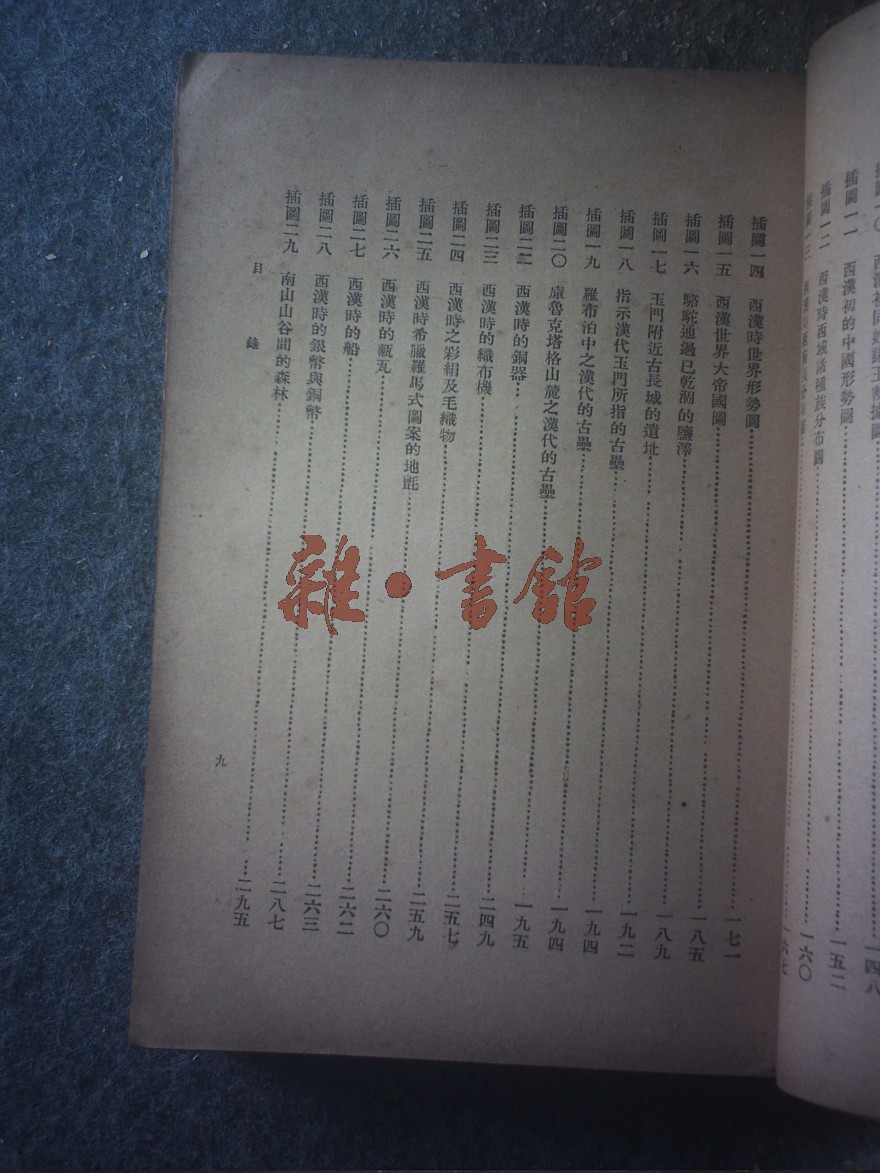 插圖一〇 西漢初同姓諸王割據圖……一四八
插圖一一 西漢初的中國形勢圖……一五二
插圖一二 西漢時西域諸種族分布圖……一六〇
一六七
插圖一四 西漢時世界形勢圖……一七一
插圖一五 西漢世界大帝國圖……一八五
插圖一六 駱駝通過已乾涸的鹽澤……一八九
插圖一七 玉門附近古長城的遺址……一九二
插圖一八 指示漢代玉門所指的古壘……一九四
插圖一九 羅布泊中之漢代的古壘……一九四
插圖二〇 庫魯克塔格山麓之漢代的古壘……一九五
插圖二二 西漢時的銅器……二四九
插圖二三 西漢時的織布機……二五七
插圖二四 西漢時之彩絹及毛織物……二五九
插圖二五 西漢時希臘羅馬式圖案的地氈……二六〇
插圖二六 西漢時的瓶瓦……二六二
插圖二七 西漢時的船……二六三
插圖二八 西漢時的銀幣與銅幣……二八七
插圖二九 南山山谷間的森林……二九五
目錄
九
雜·書館